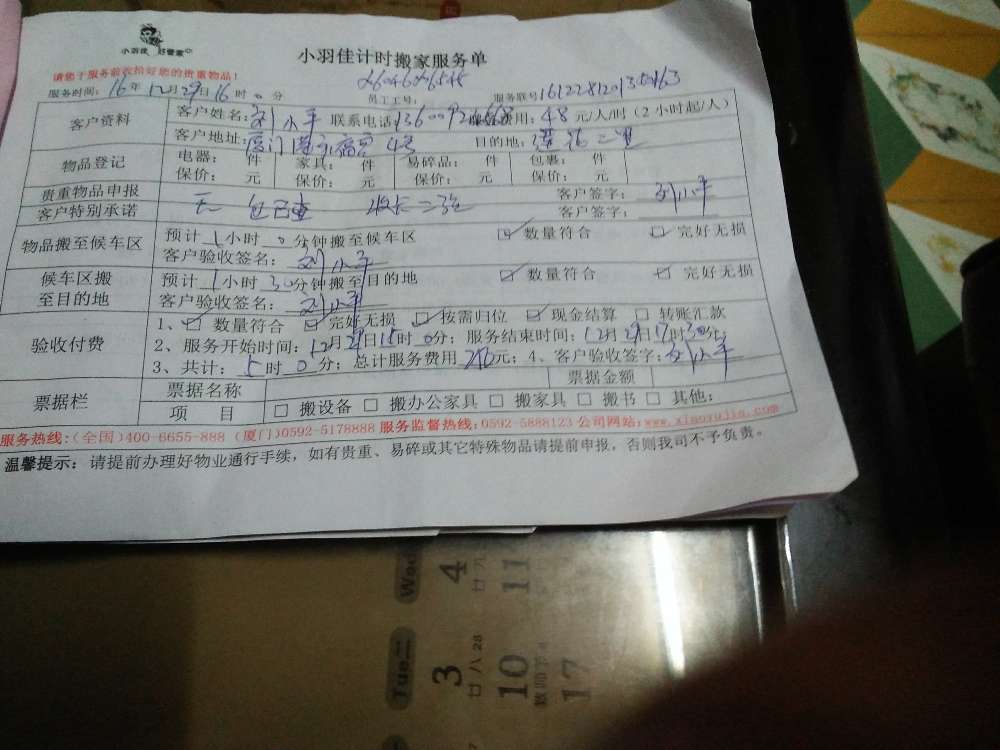 小羽佳 好管家
小羽佳计时搬家服务单
请您于服务前收拾好您的贵重物品！
服务时间：16年12月29日16时0分 员工工号： 服务联号
客户资料
客户姓名：刘小平 联系电话： 服务费用：48元/人/时（2小时起/人）
客户地址：厦门 目的地：
物品登记
电器： 件 家具： 件 易碎品： 件 包裹： 件
保价： 元 保价： 元 保价： 元 保价： 元
贵重物品申报 无 客户签字：刘小平
客户特别承诺 客户签字：
物品搬至候车区
预计1小时0分钟搬至候车区 数量符合 完好无损
客户验收签名：刘小平
候车区搬至目的地
预计1小时30分钟搬至目的地 数量符合 完好无损
客户验收签名：刘小平
验收付费
1、数量符合 完好无损 按需归位 现金结算 转账汇款
2、服务开始时间：12月29日15时0分；服务结束时间：12月29日17时30分；
3、共计：5时0分；总计服务费用240元；4、客户验收签字：刘小平
票据栏
票据名称 票据金额
项 目 搬设备 搬办公家具 搬家具 搬书 其他：
服务热线：(全国)400-6655-888 (厦门)0592-5178888 服务监督热线：0592-5888123 公司网站：www.xiaoyujia.com
温馨提示：请提前办理好物业通行手续，如有贵重、易碎或其它特殊物品请提前申报，否则我司不予负责。
4 11
廿八
Tue二 3 10 17
廿八 28 教师节